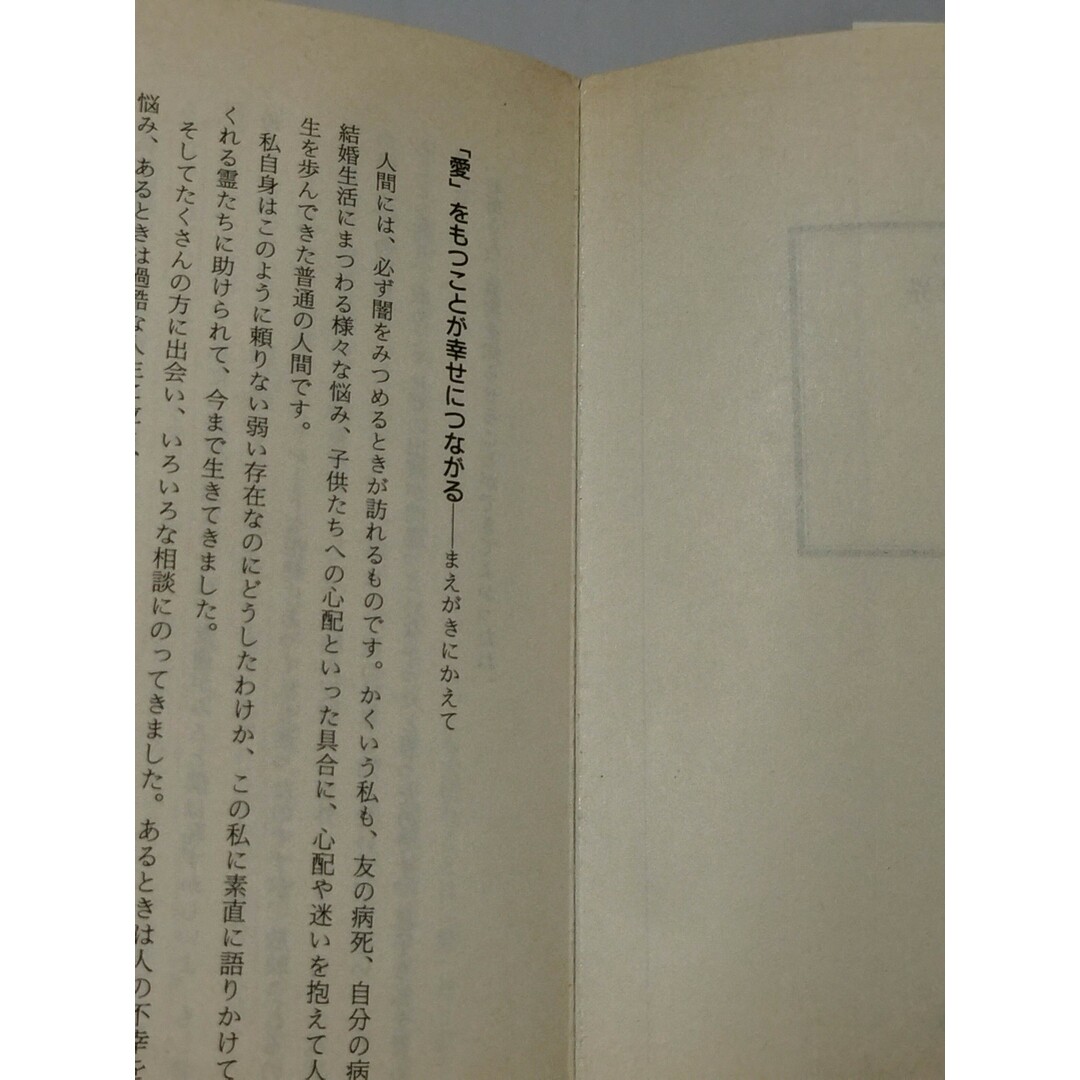 「愛」をもつことが幸せにつながる――まえがきにかえて
人間には、必ず闇をみつめるときが訪れるものです。かくいう私も、友の病死、自分の病
結婚生活にまつわる様々な悩み、子供たちへの心配といった具合に、心配や迷いを抱えて人
生を歩んできた普通の人間です。
私自身はこのように頼りない弱い存在なのにどうしたわけか、この私に素直に語りかけて
くれる霊たちに助けられて、今まで生きてきました。
そしてたくさんの方に出会い、いろいろな相談にのってきました。あるときは人の不幸を
悩み、あるときは過酷な人生に